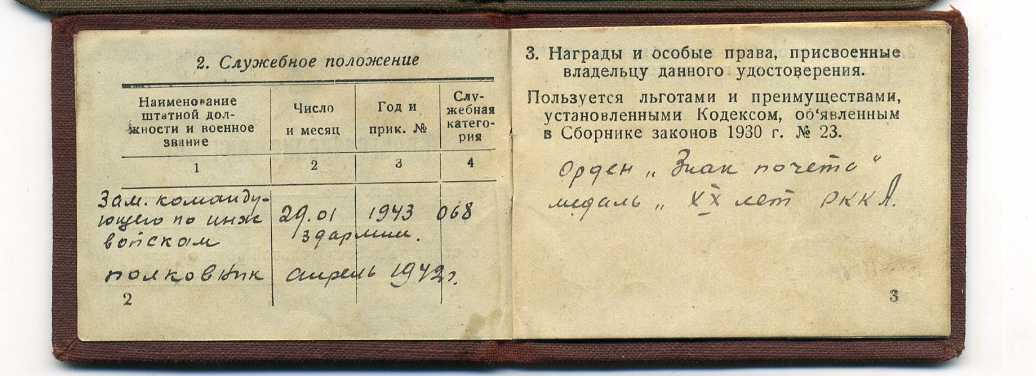 2. Служебное положение
Наименование
штатной дол-
жности и военное
звание
Число
и месяц
Год и
прик. №
Слу-
жебная
катего-
рия
1 2 3 4
Зам. команду-
ющего по инж
войскам
29.01 1943 068
3 армии.
полковник апрель 1942г.
2
3. Награды и особые права, присвоенные
владельцу данного удостоверения.
Пользуется льготами и преимуществами,
установленными Кодексом, об‘явленным
в Сборнике законов 1930 г. № 23.
Орден „Знак почета“
медаль „XX лет РККА.
3